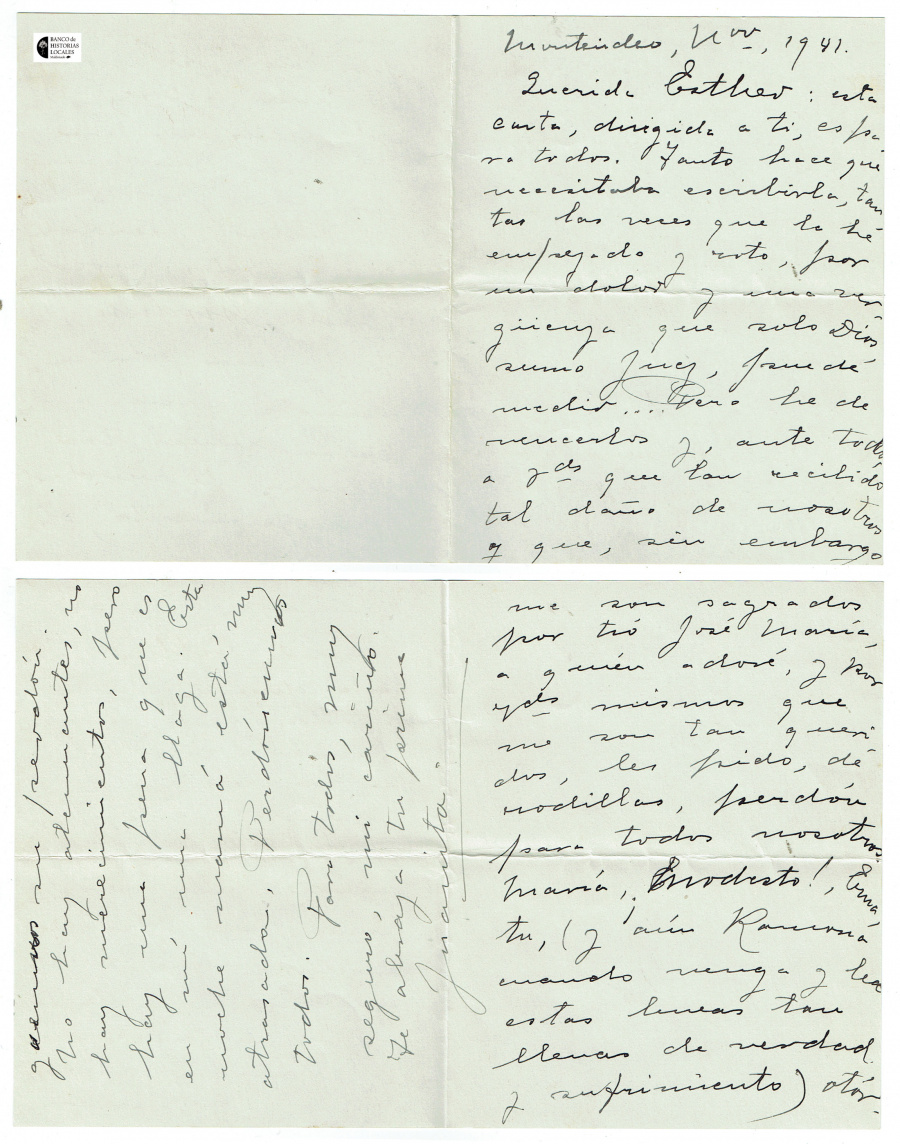 BANCO de
HISTORIAS
LOCALES
Montevideo, Nov., 1941.
Querida Esther: esta
carta, dirigida a ti, es pa-
ra todos. Tanto hace que
necesitaba escribirla, tan
tas las veces que la hé
empezado y roto, por
un dolor y una ver
güenza que solo Diós
sumo Juez, puedé
medir.... Pero he de
vencerlos y, ante todo
a Vds que han recibido
tal daño de nosotros
y que, sin embargo
me son sagrados
por tió José María
a quién adoré, y por
Vds mismos que
me son tan queri
dos, les pido, dé
rodillas, perdón
para todos nosotros.
María, Modesto!, Ema,
tu, (y aún Ramona
cuando venga y lea
estas lineas tan
llenas de verdad
y sufrimiento) otór-
guennos su perdón.
No hay atenuantes, no
hay merecimientos, pero
hay una pena que es
en mí una llaga. Esta
noche mamá está muy
atrasada. Perdónennos
todos. Para todos, muy
seguro, mi cariño.
Te abraza tu prima
Juanita.